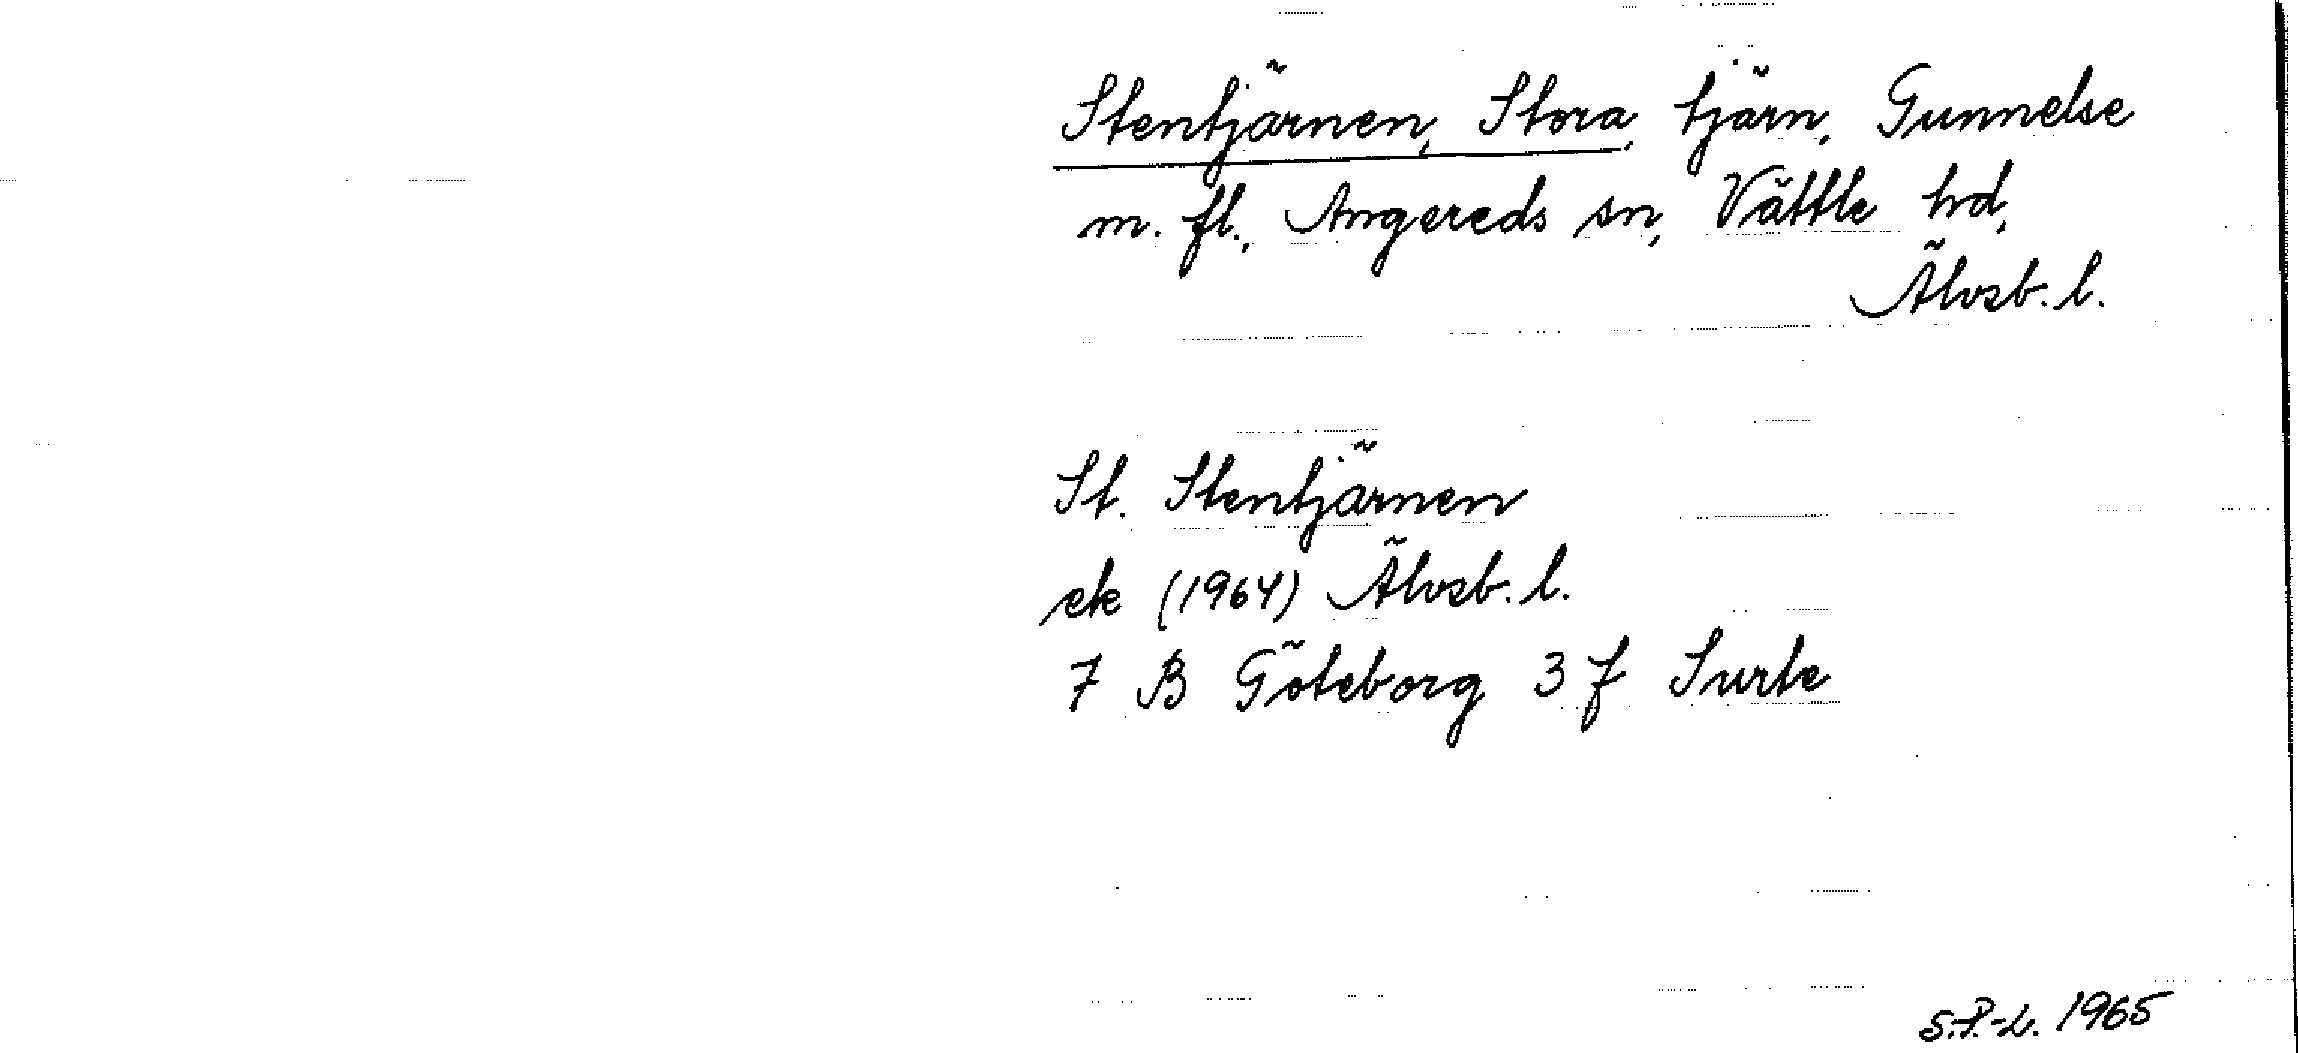 Stentjärnen, Stora, tjärn, Gunnelse
m. fl., Angereds sn, Vättle hd,
Älvsb. l.
St. Stentjärnen
ek (1964) Älvsb. l.
7 B Göteborg 3 f Surte
S.P.-L. 1965